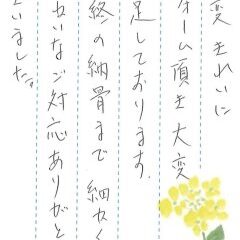 変きれいに
ォーム頂き大変
足しております。
終の納骨まで細かく
ねいなご対応ありがと
いました。